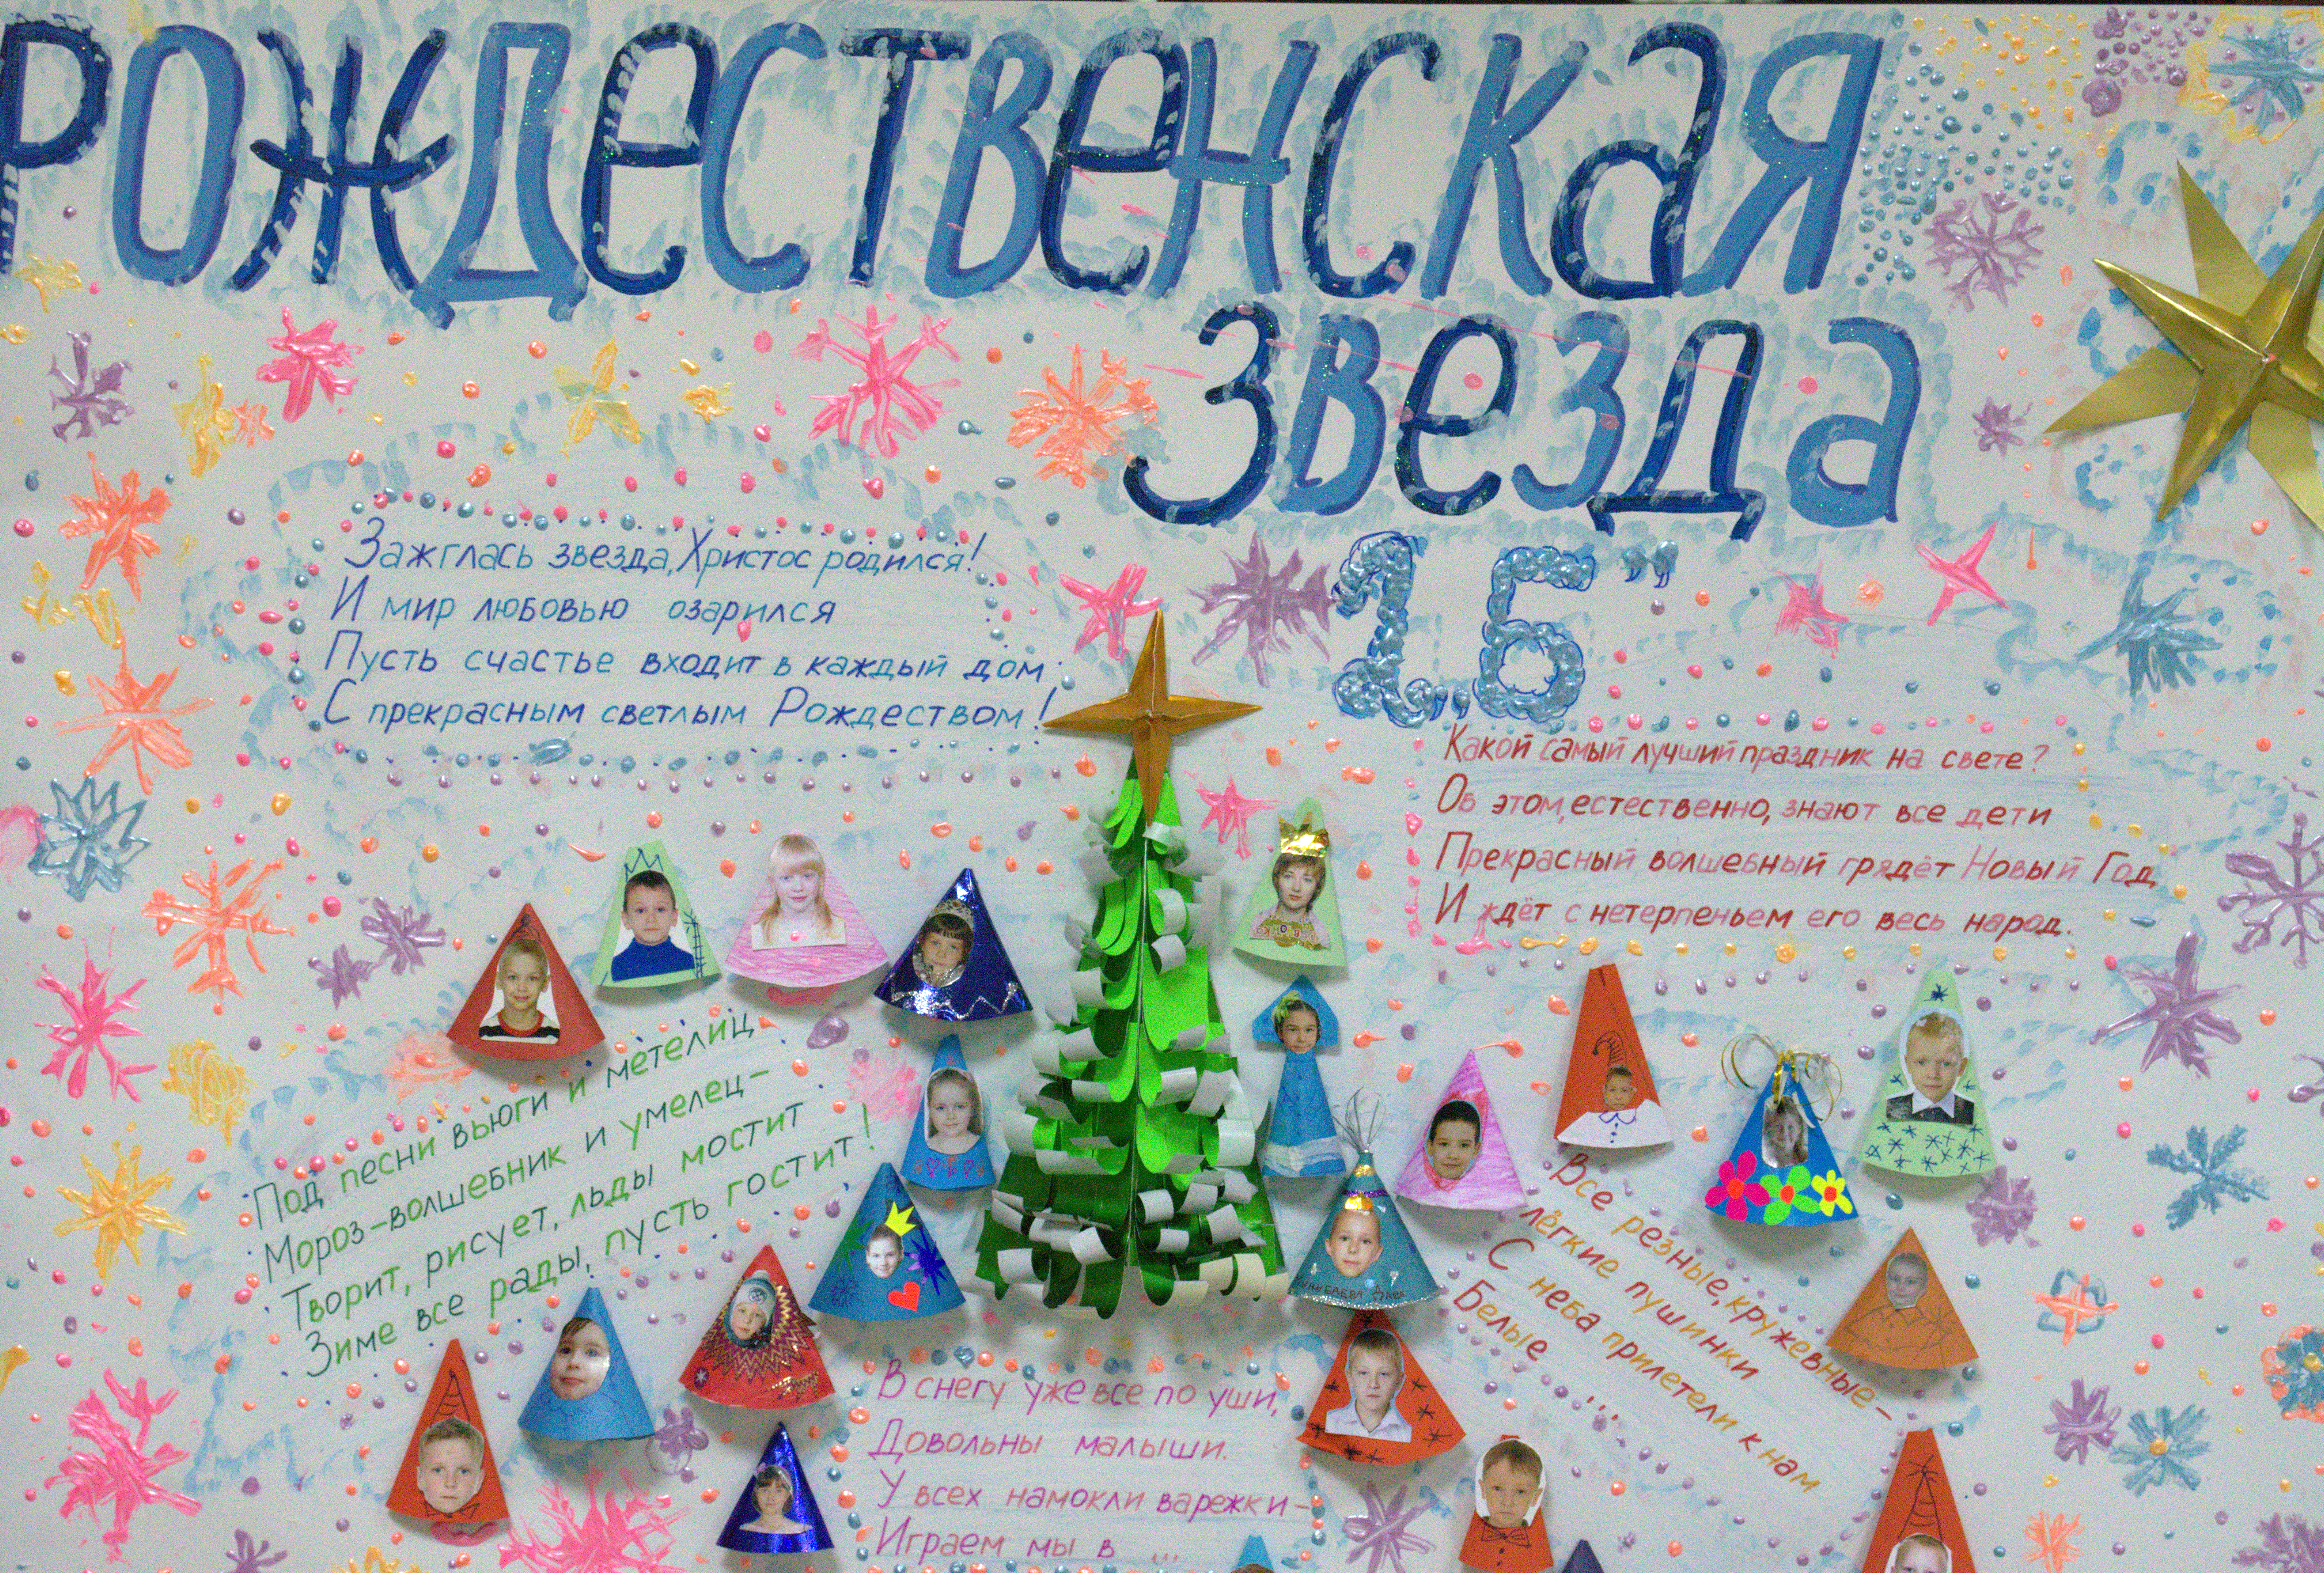 РОЖДЕСТВЕНСКАЯ
ЗВЕЗДА
1,5"
Зажглась звезда, Христос родился!
И мир любовью озарился
Пусть счастье входит в каждый дом
С прекрасным светлым Рождеством!
Какой самый лучший праздник на свете?
Об этом, естественно, знают все дети
Прекрасный волшебный грядёт Новый Год
И ждёт с нетерпеньем его весь народ.
Под песни вьюги и метелиц
Мороз-волшебник и умелец-
Творит, рисует, льды мостит
Зиме все рады, пусть гостит!
Все резные, кружевные-
лёгкие пушинки
С неба прилетели к нам
Белые ...
В снегу уже все по уши,
Довольны малыши.
У всех намокли варежки-
Играем мы в ...